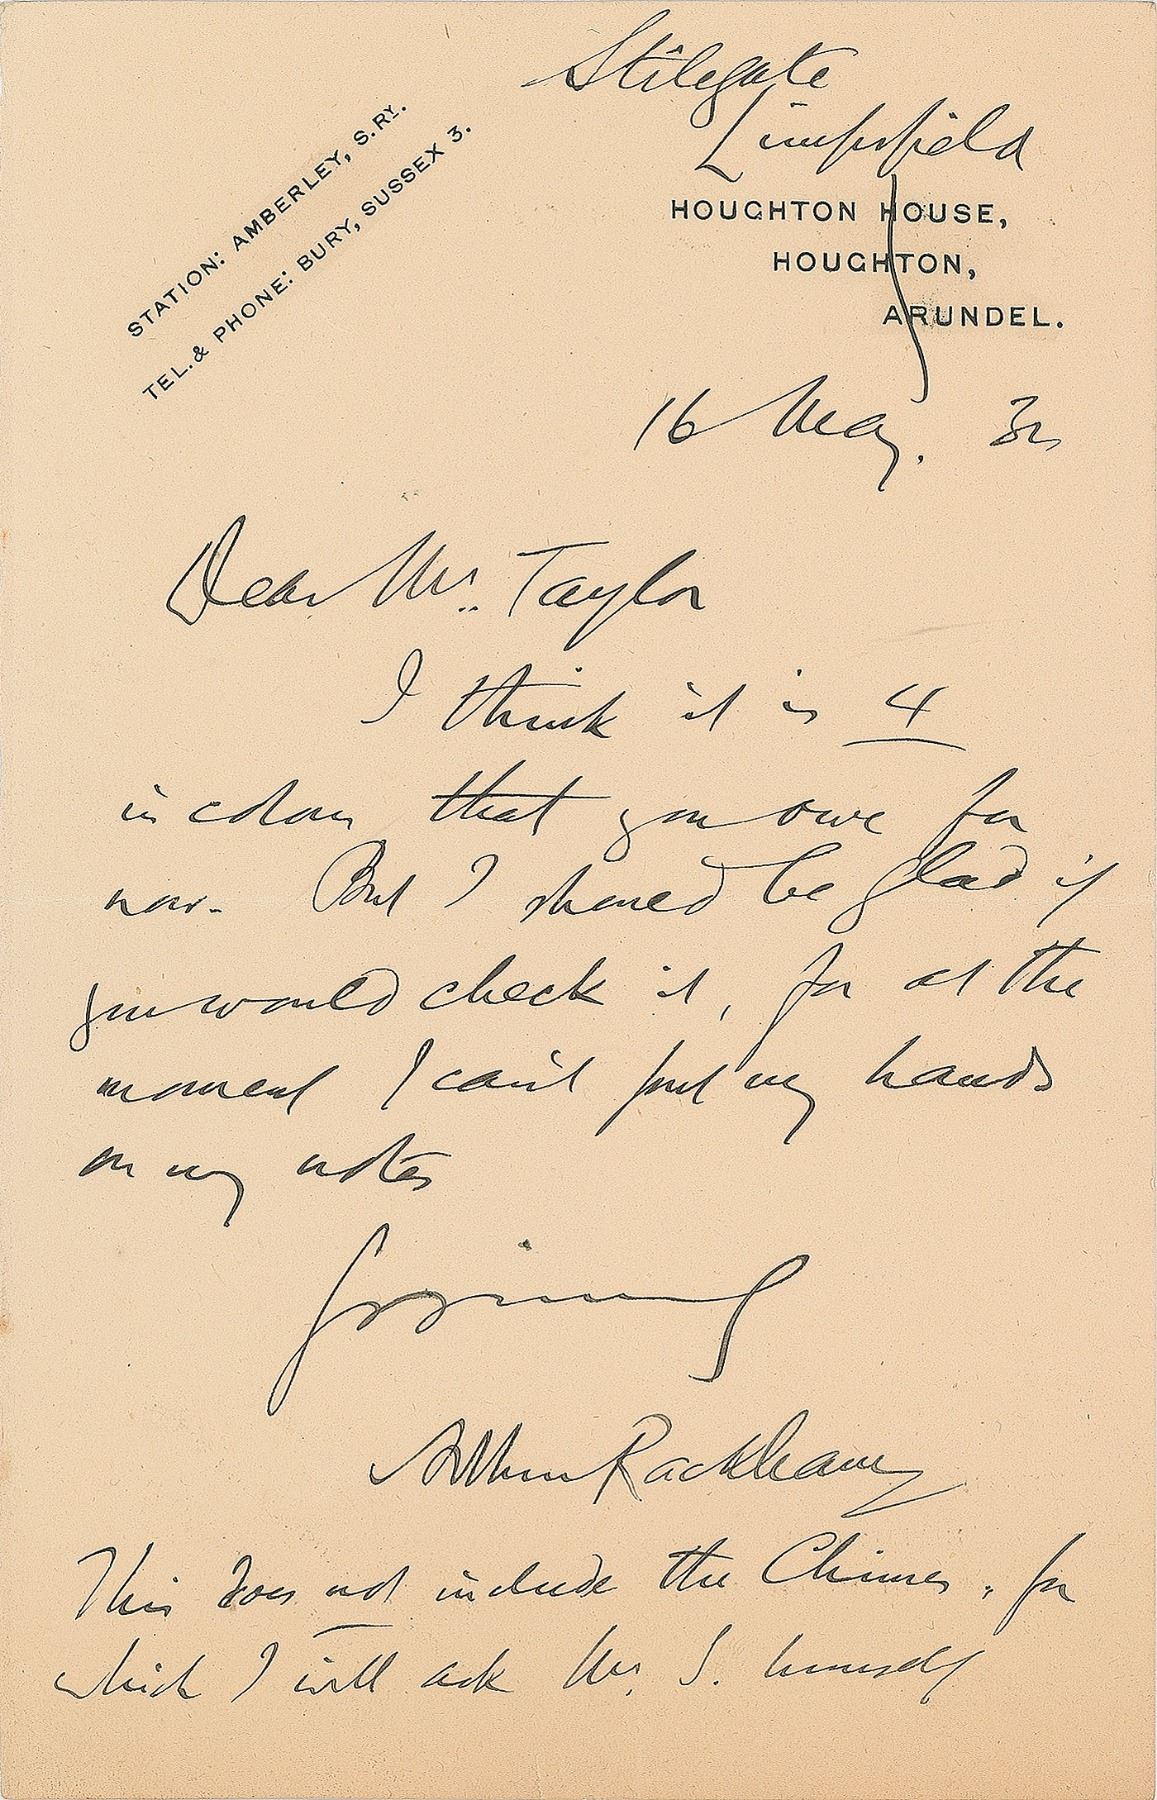 Stilegate
Limpsfield
STATION: AMBERLEY, S.RY.
TEL. & PHONE: BURY, SUSSEX 3.
HOUGHTON HOUSE,
HOUGHTON,
ARUNDEL.
16 May. 32
Dear Mr. Taylor
I think it is 4
in colour that you owe for
now. But I should be glad if
you would check it, for at the
moment I can't put my hands
on my notes
Arthur Rackham
This does not include the Chimes, for
which I will ask Mr. S. himself